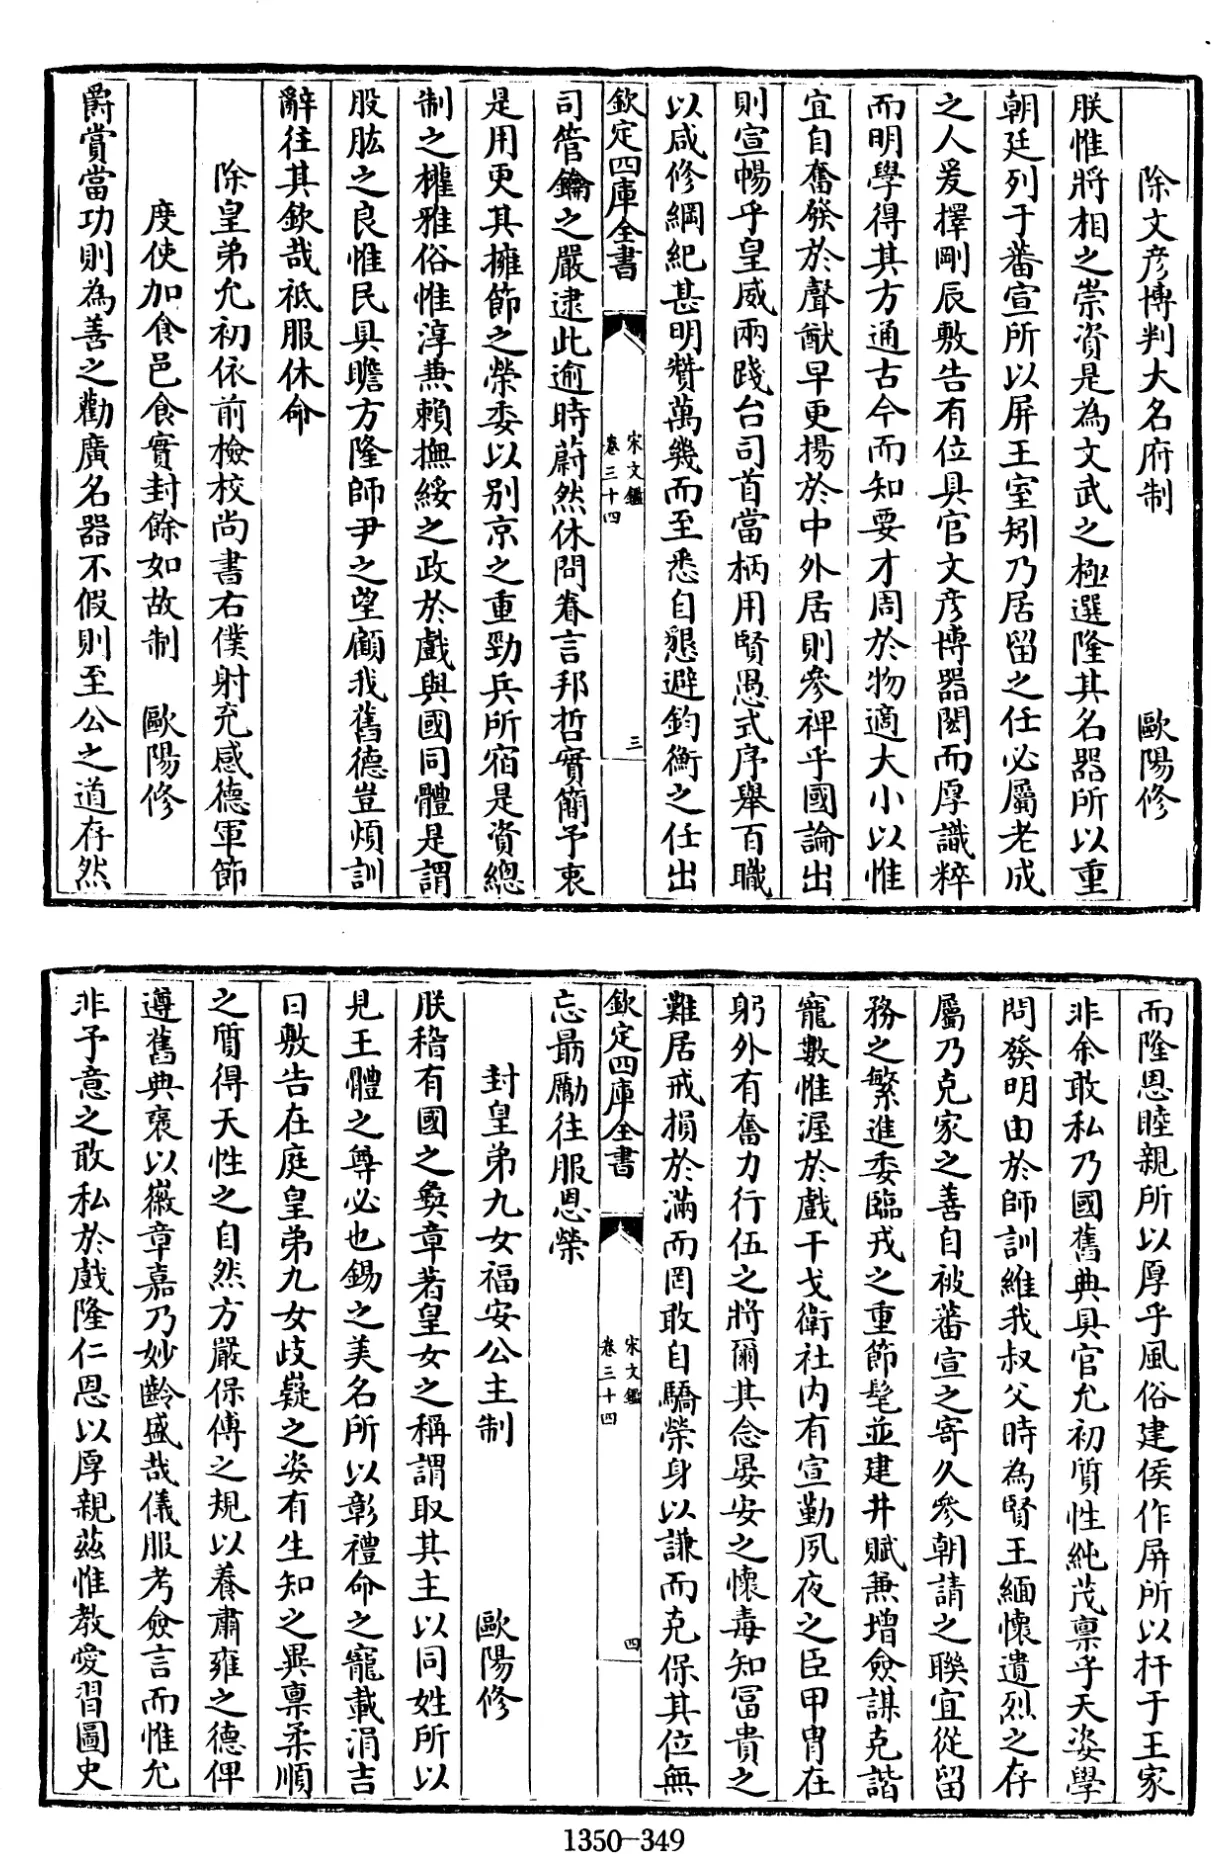 除文彥博判大名府制 歐陽修
朕惟將相之崇資是為文武之極選隆其名器所以重
朝廷列于蕃宣所以屏王室矧乃居留之任必屬老成
之人爰擇剛辰敷告有位具官文彥博器閎而厚識粹
而明學得其方通古今而知要才周於物適大小以惟
宜自奮發於聲猷早更揚於中外居則參裨乎國論出
則宣暢乎皇威兩踐台司首當柄用賢愚式序舉百職
以咸修綱紀甚明贊萬幾而至悉自懇避鈞衡之任出
欽定四庫全書 宋文鑑 卷三十四 三
司管鑰之嚴逮此逾時蔚然休問眷言邦哲實簡予衷
是用更其擁節之榮委以别京之重勁兵所宿是資總
制之權雅俗惟淳兼賴撫綏之政於戲與國同體是謂
股肱之良惟民具瞻方隆師尹之望顧我舊德豈煩訓
辭往其欽哉祗服休命
除皇弟允初依前檢校尚書右僕射充感德軍節
度使加食邑食實封餘如故制 歐陽修
爵賞當功則為善之勸廣名器不假則至公之道存然
而隆恩睦親所以厚乎風俗建侯作屏所以扞于王家
非余敢私乃國舊典具官允初質性純茂稟乎天姿學
問發明由於師訓維我叔父時為賢王緬懷遺烈之存
屬乃克家之善自被蕃宣之寄久參朝請之聯宜從留
務之繁進委臨戎之重節髦並建井賦兼增僉謀克諧
寵數惟渥於戲干戈衛社内有宣勤夙夜之臣甲胄在
躬外有奮力行伍之將爾其念晏安之懷毒知富貴之
難居戒損於滿而罔敢自驕榮身以謙而克保其位無
欽定四庫全書 宋文鑑 卷三十四 四
忘最勵往服恩榮
封皇弟九女福安公主制 歐陽修
朕稽有國之彜章著皇女之稱謂取其主以同姓所以
見王體之尊必也錫之美名所以彰禮命之寵載涓吉
日敷告在庭皇弟九女歧嶷之姿有生知之異稟柔順
之質得天性之自然方嚴保傅之規以養肅雍之德俾
遵舊典褒以徽章嘉乃妙齡盛哉儀服考僉言而惟允
非予意之敢私於戲隆仁恩以厚親茲惟教愛習圖史
1350-349